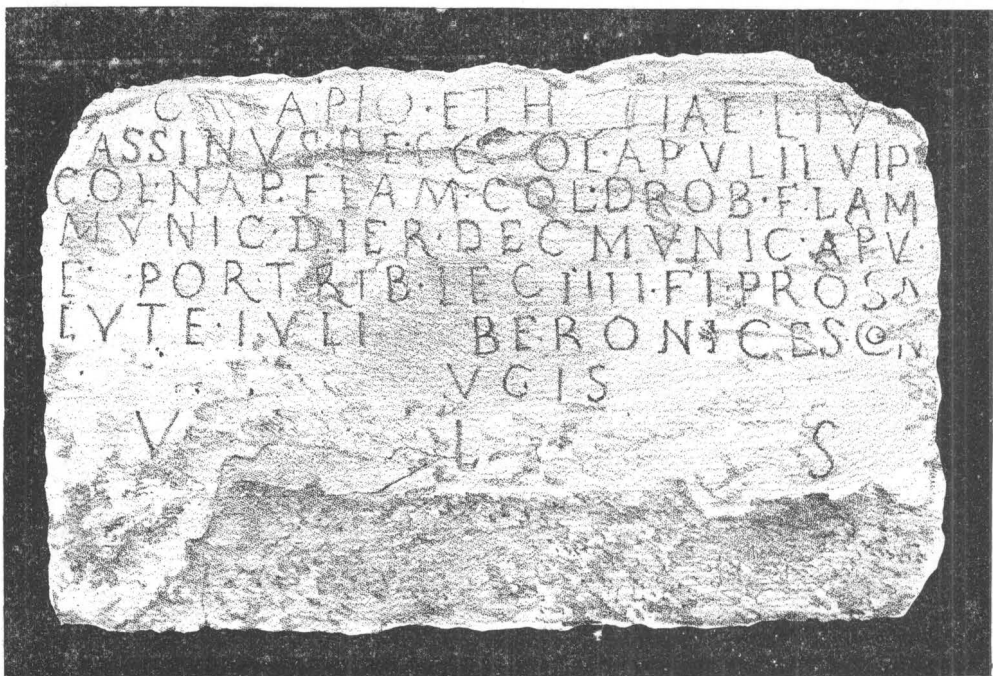 A·PIO·ET H IIAE·L·IV
ASSINVS·DEC C OL·APVLIIVIP
COL·NAP·FLAM·COL·DROB·FLAM
MVNIC·DIER·DEC MVNIC·APV·
E· PORT TRIB·LEC IIII·FI·PROSA
LVTE·IVLI BERONICES CON
VGIS
V L S